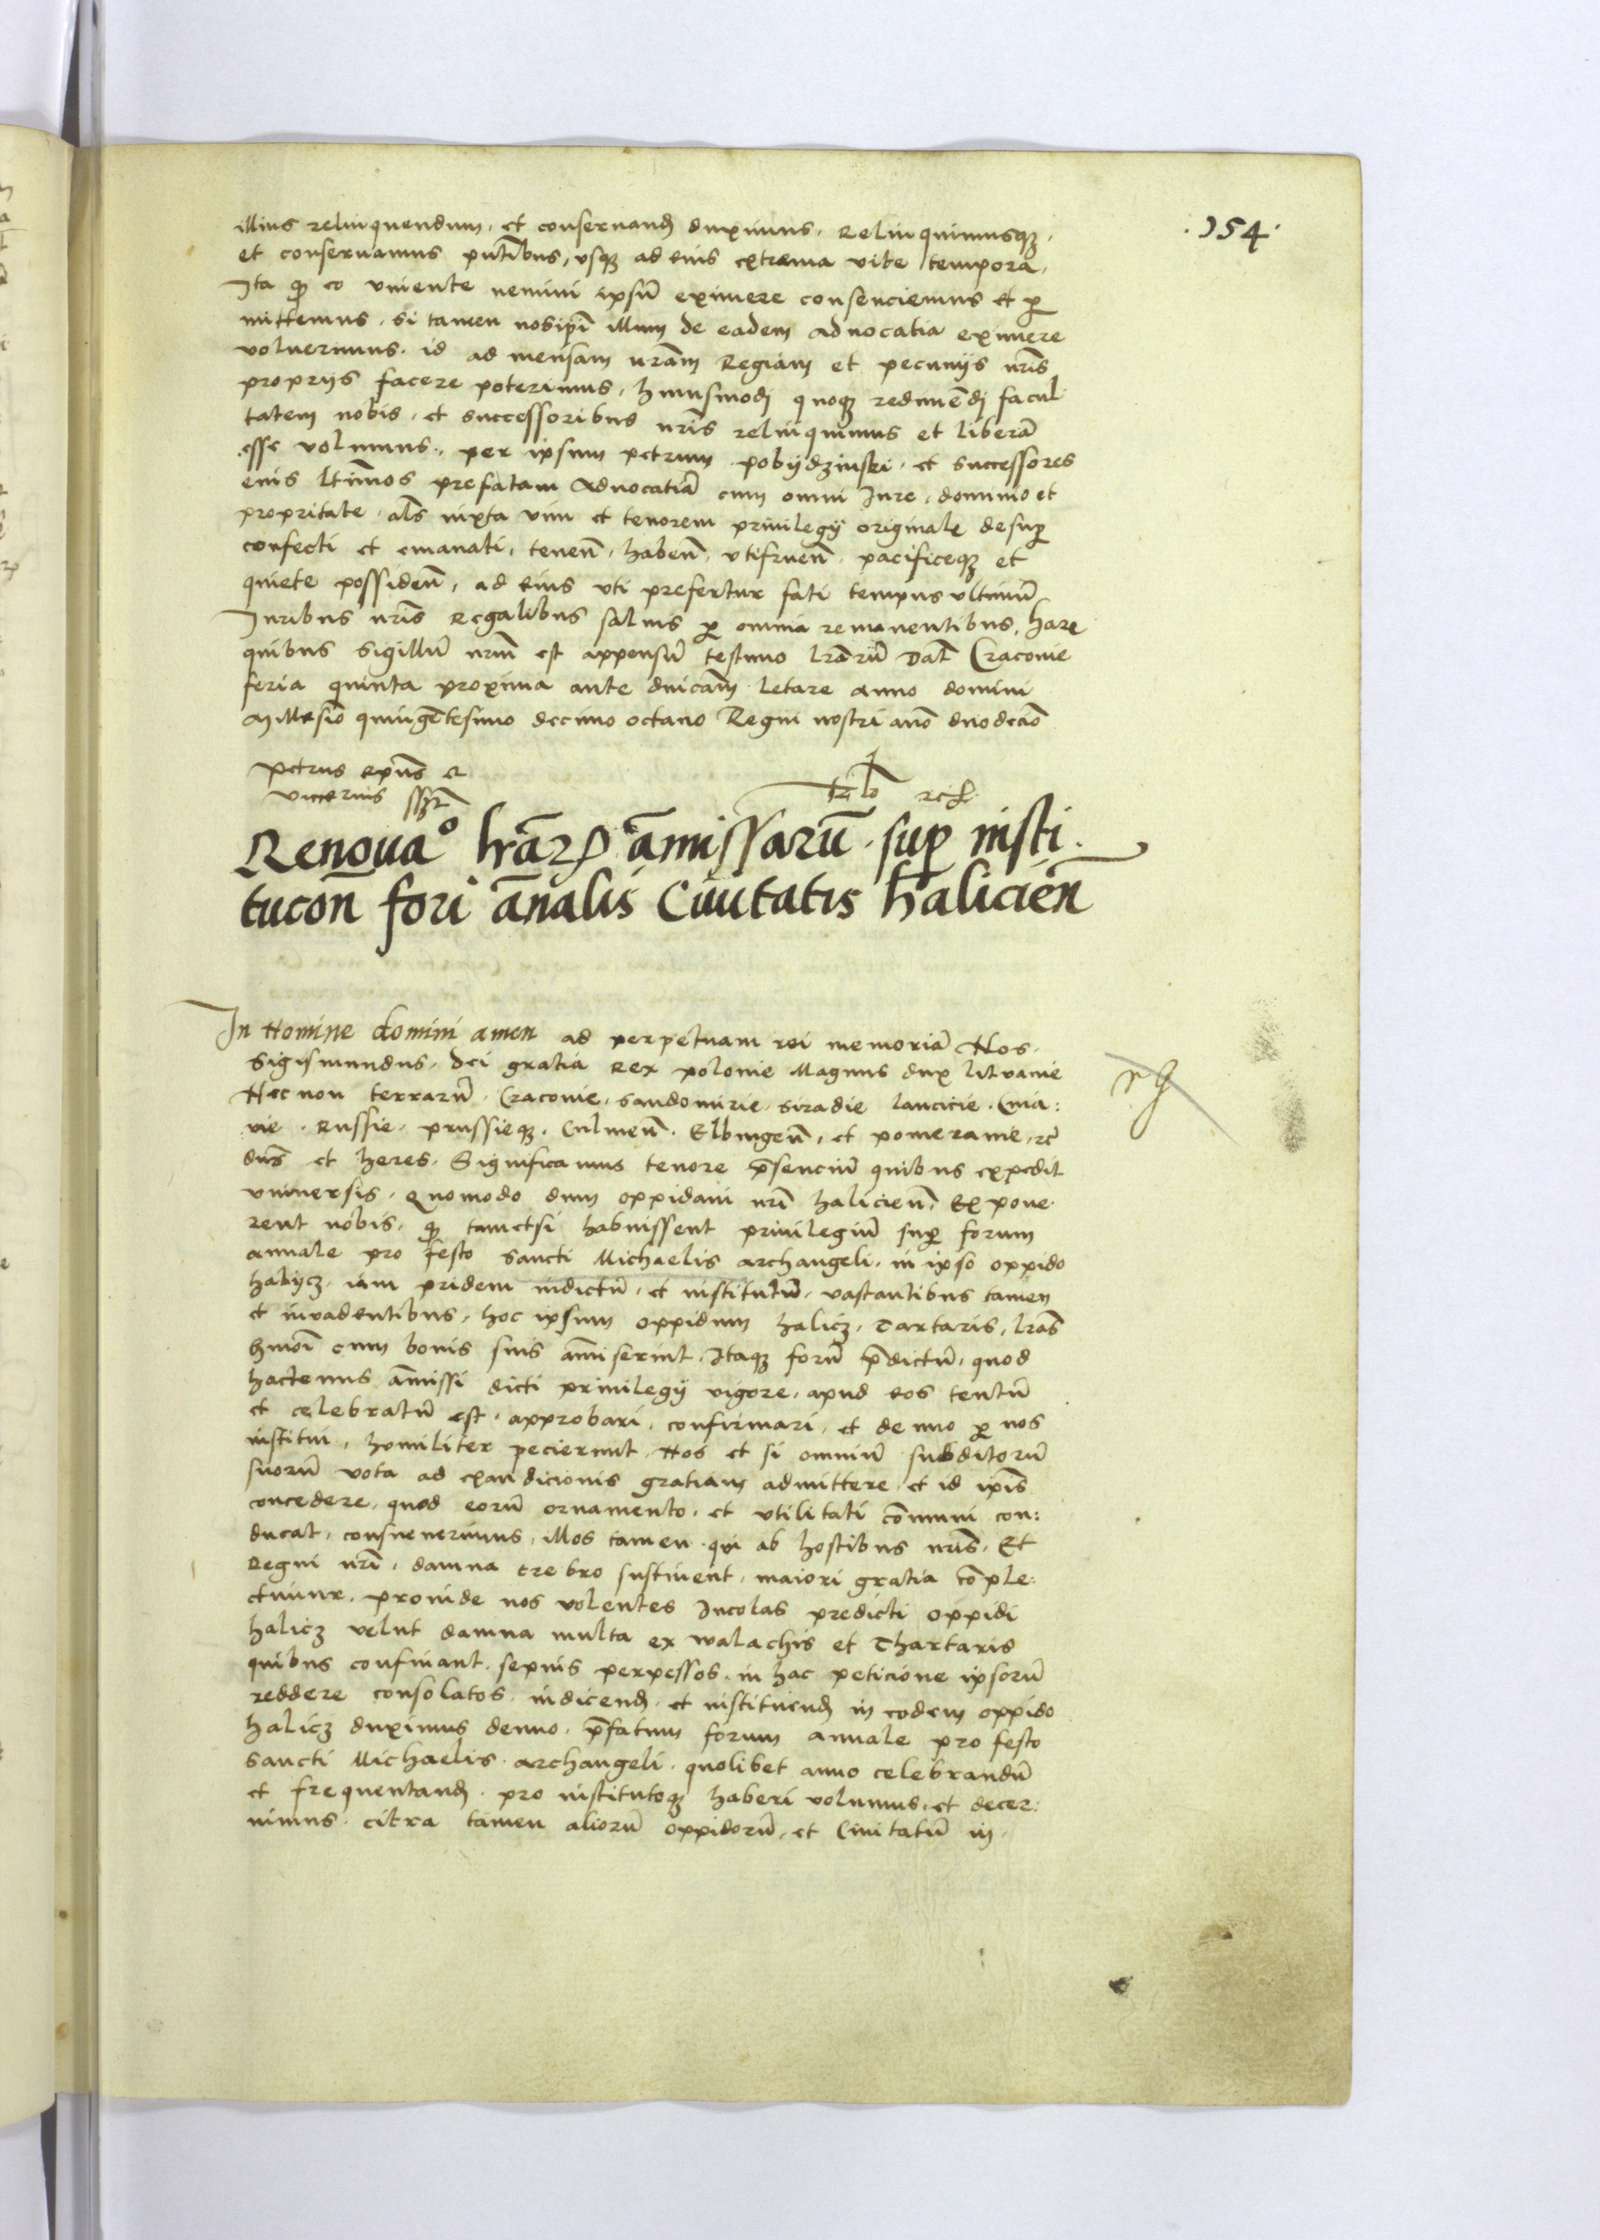 .154.
illius relinquendum. et conseruand duximus. Relinquimusqz.
et conseruamus pntibus, vsqz ad eius extrema vite tempora.
Ita q eo viuente nemini ipsu eximere consenciemus et p
mittemus. Si tamen nosipi illum de eadem aduocatia eximere
voluerimus. id ad mensam nram Regiam et pecunijs nris
proprijs facere poterimus. huiusmodj quoqz redimēdj facul
tatem nobis. et successoribus nris relinquimus et liberā
esse volumus. per ipsum petrum pobijdzinski. et successores
eius ltimos prefatam Aduocatiā cum omni Iure. dominio et
propritate. als iuxta vim et tenorem priuilegij originale desup
confecti et emanati, tenen̄. haben̄. vtifruen̄. pacificeqz et
quiete possiden̄, ad eius vti prefertur fati tempus vltimū
Iuribus nris Regalibus saluis p omnia remanentibus. harȩ
quibus sigillū nrm est appensū testimo lrarū Dat̄ Cracouie
feria quinta proxima ante dnicam letare anno domini
Millesio quingētesimo decimo octauo Regni nostri ano duodecio
Petrus epus et
vicecrius sszt
Relo rcf
Renoua° lrāꝝ āmissarū. sup insti.
tucon̄ fori ānalis Ciuitatis halicien̄
In Nomine domini amen ad perpetuam rei memoriā Nos.
Sigismundus. Dei gratia Rex polonie Magnus dux lituanie
Nec non terrarū. Cracouie. Sandomirie. Siradie lancicie. Cuia:
uie. Russie. prussieqz. Culmen̄. Elbingen̄, et pomeranie. rc̄
dūs et heres. Significamus tenore p̄senciū quibus expedit
vniuersis. Quomodo dum oppidani nri halicien̄. Expone
rent nobis. q tametsi habuissent priuilegiū sup forum
annale pro festo Sancti Michaelis archangeli. in ipso oppido
halijcz. iam pridem indictū. et institutū. vastantibus tamen
et inuadentibus, hoc ipsum oppidum halicz. Tartaris, lras
hmoi cum bonis suis āmiserint. Itaqz forū p̄dictū. quod
hactenus āmissi dicti priuilegij vigore. apud eos tentū
et celebratū est. approbari. confirmari. et denuo p nos
institui, homiliter pecierunt. Nos et si omniū subditorū
suorū vota ad exaudicionis gratiam admittere. et id ipis
concedere. quod eorū ornamento. et vtilitati cōmuni con:
ducat. consueuerimus. illos tamen. qui ab hostibus nris. Et
Regni nri. damna crebro sustinent. maiori gratia cōple:
ctimur. proinde nos volentes Incolas predicti oppidi
halicz velut damna multa ex walachis et Thartaris
quibus confiniant. sepius perpessos. in hac peticione ipsorū
reddere consolatos. indicend. et instituend in eodem oppido
halicz duximus denuo. p̄fatum forum annale pro festo
Sancti Michaelis. archangeli. quolibet anno celebrandū
et frequentand. pro institutoqz haberi volumus. et decer:
nimus. citra tamen aliorū oppidorū. et Ciuitatū in.